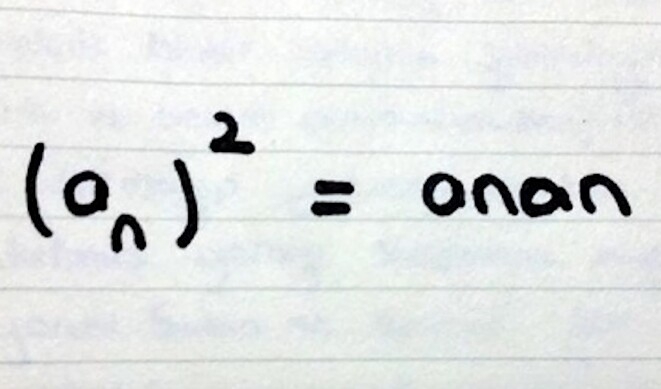 (aₙ)² = anan